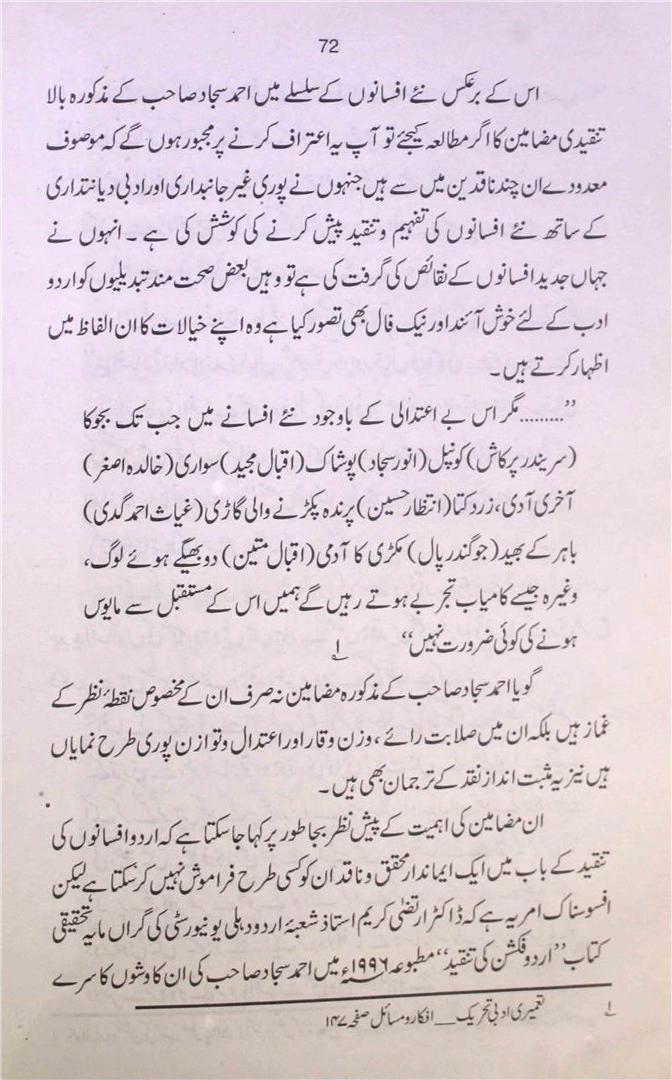 72
اس کے برعکس نئے افسانوں کے سلسلے میں احمد سجاد صاحب کے مذکورہ بالا
تنقیدی مضامین کا اگر مطالعہ کیجئے تو آپ یہ اعتراف کرنے پر مجبور ہوں گے کہ موصوف
معدودے ان چند ناقدین میں سے ہیں جنہوں نے پوری غیر جانبداری اور ادبی دیانتداری
کے ساتھ نئے افسانوں کی تفہیم و تنقید پیش کرنے کی کوشش کی ہے ۔ انہوں نے
جہاں جدید افسانوں کے نقائص کی گرفت کی ہے تو وہیں بعض صحت مند تبدیلیوں کو اردو
ادب کے لئے خوش آئند اور نیک فال بھی تصور کیا ہے وہ اپنے خیالات کا ان الفاظ میں
اظہار کرتے ہیں ۔
”.........مگر اس بے اعتدالی کے باوجود نئے افسانے میں جب تک بجوکا
(سریندر پرکاش) کونپل (انور سجاد) پوشاک (اقبال مجید) سواری (خالدہ اصغر)
آخری آدمی، زرد کتا (انتظار حسین) پرندہ پکڑنے والی گاڑی (غیاث احمد گدی)
باہر کے بھید (جوگندر پال) مکڑی کا آدمی (اقبال متین) دو بھیگے ہوئے لوگ،
وغیرہ جیسے کامیاب تجربے ہوتے رہیں گے ہمیں اس کے مستقبل سے مایوس
ہونے کی کوئی ضرورت نہیں“ ۱؎
گویا احمد سجاد صاحب کے مذکورہ مضامین نہ صرف ان کے مخصوص نقطۂ نظر کے
غماز ہیں بلکہ ان میں صلابت رائے ، وزن و وقار اور اعتدال و توازن پوری طرح نمایاں
ہیں نیز یہ مثبت انداز نقد کے ترجمان بھی ہیں ۔
ان مضامین کی اہمیت کے پیش نظر بجا طور پر کہا جا سکتا ہے کہ اردو افسانوں کی
تنقید کے باب میں ایک ایماندار محقق و ناقد ان کو کسی طرح فراموش نہیں کر سکتا ہے لیکن
افسوسناک امر یہ ہے کہ ڈاکٹر ارتضیٰ کریم استاذ شعبۂ اردو دہلی یونیورسٹی کی گراں مایہ تحقیقی
کتاب ”اردو فکشن کی تنقید“ مطبوعہ ۱۹۹۶ء میں احمد سجاد صاحب کی ان کاوشوں کا سرے
۱؎ تعمیری ادبی تحریک ۔ افکار و مسائل صفحہ ۱۴۷